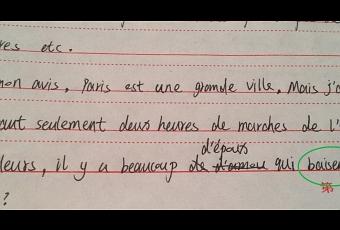 res etc.
mon avis, Paris est une grande ville, Mais j'a
aut seulement deux heures de marches de l'
d'épous
leurs, il y a beaucoup de qui baise
第
?